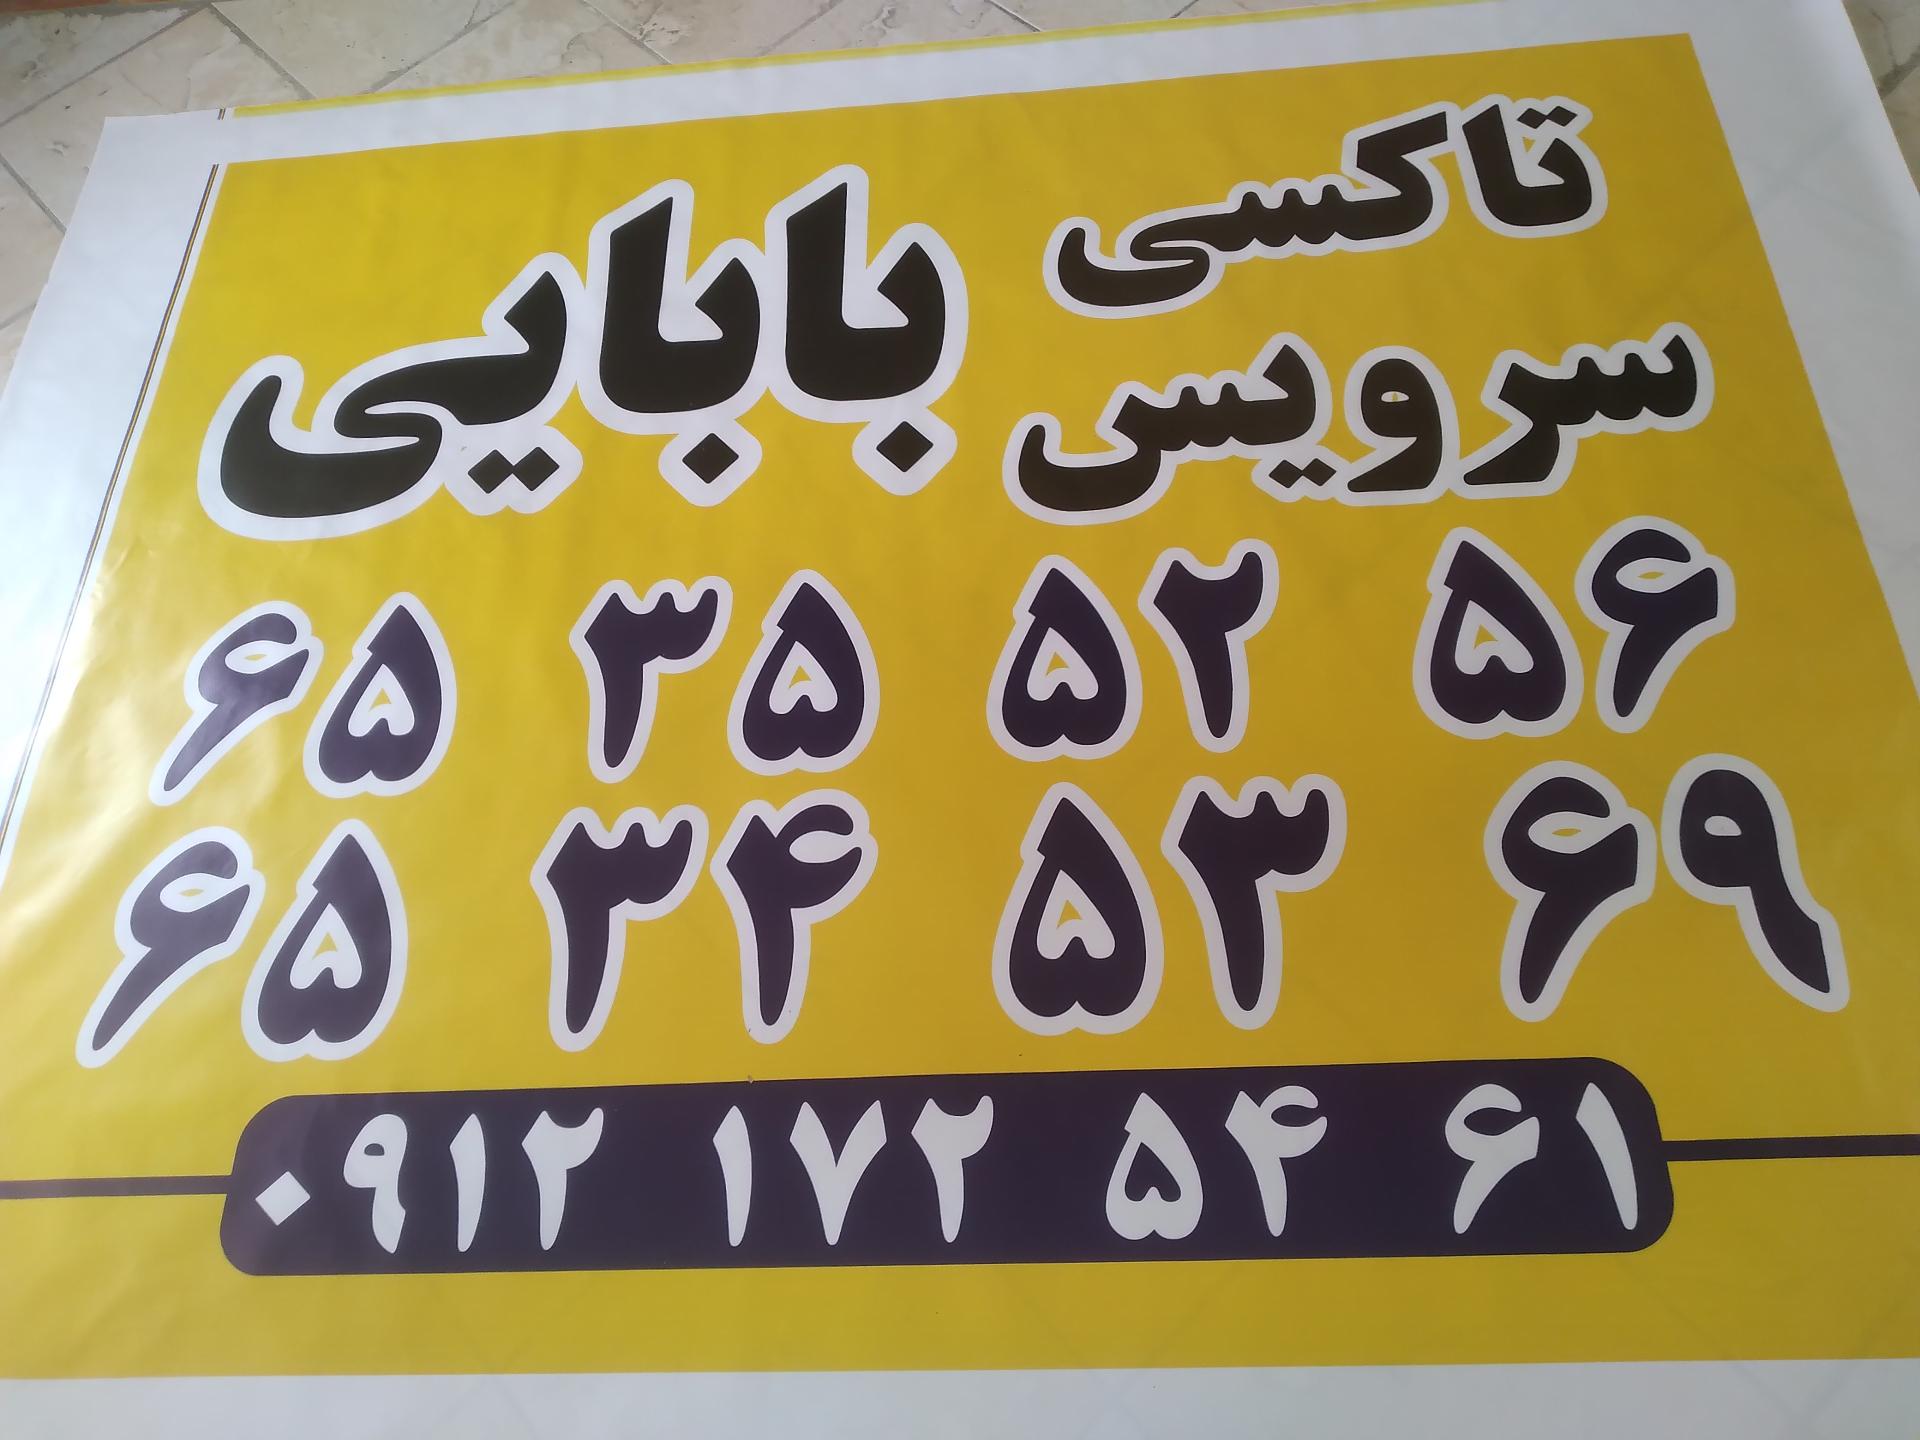 تاکسی
سرویس
بابایی
۶۵ ۳۵ ۵۲ ۵۶
۶۵ ۳۴ ۵۳ ۶۹
۰۹۱۲ ۱۷۲ ۵۴ ۶۱